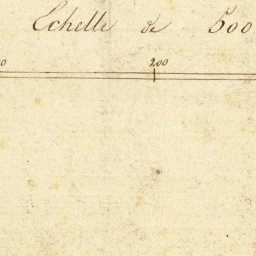 Echelle de 500
0 200